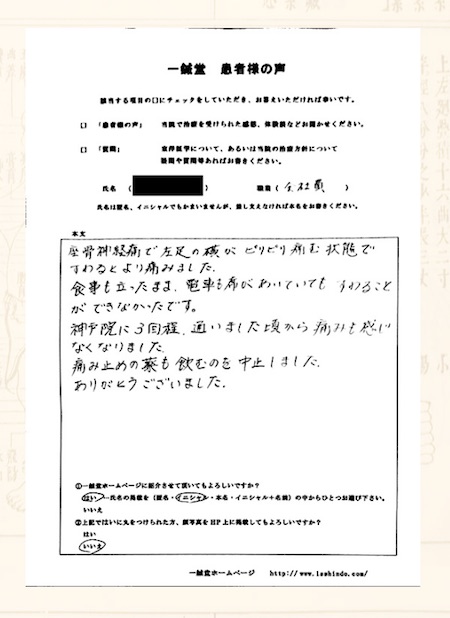 一鍼堂 患者様の声
該当する項目の口にチェックをしていただき、お答えいただければ幸いです。
□ 「患者様の声」 当院で治療を受けられた感想、体験談などお聞かせください。
□ 「質問」 東洋医学について、あるいは当院の治療方針について
疑問や質問等あればお書きください。
氏名 ( ) 職業 ( 会社員 )
氏名は匿名、イニシャルでもかまいませんが、差し支えなければ本名をお書きください。
本文
坐骨神経痛で左足の横が ピリピリ痛む状態で
すわるとより痛みました。
食事も立ったまま、電車も席があいていても すわること
ができなかったです。
神戸院に3回程、通いました頃から 痛みも感じ
なくなりました。
痛み止めの薬も飲むのを中止しました。
ありがとうございました。
①一鍼堂ホームページに紹介させて頂いてもよろしいですか?
はい→氏名の掲載を(匿名・イニシャル・本名・イニシャル+名前)の中からひとつお選び下さい。
いいえ
②上記ではいに丸をつけられた方、顔写真をHP上に掲載してもよろしいですか?
はい
いいえ
一鍼堂ホームページ http://www.isshindo.com/